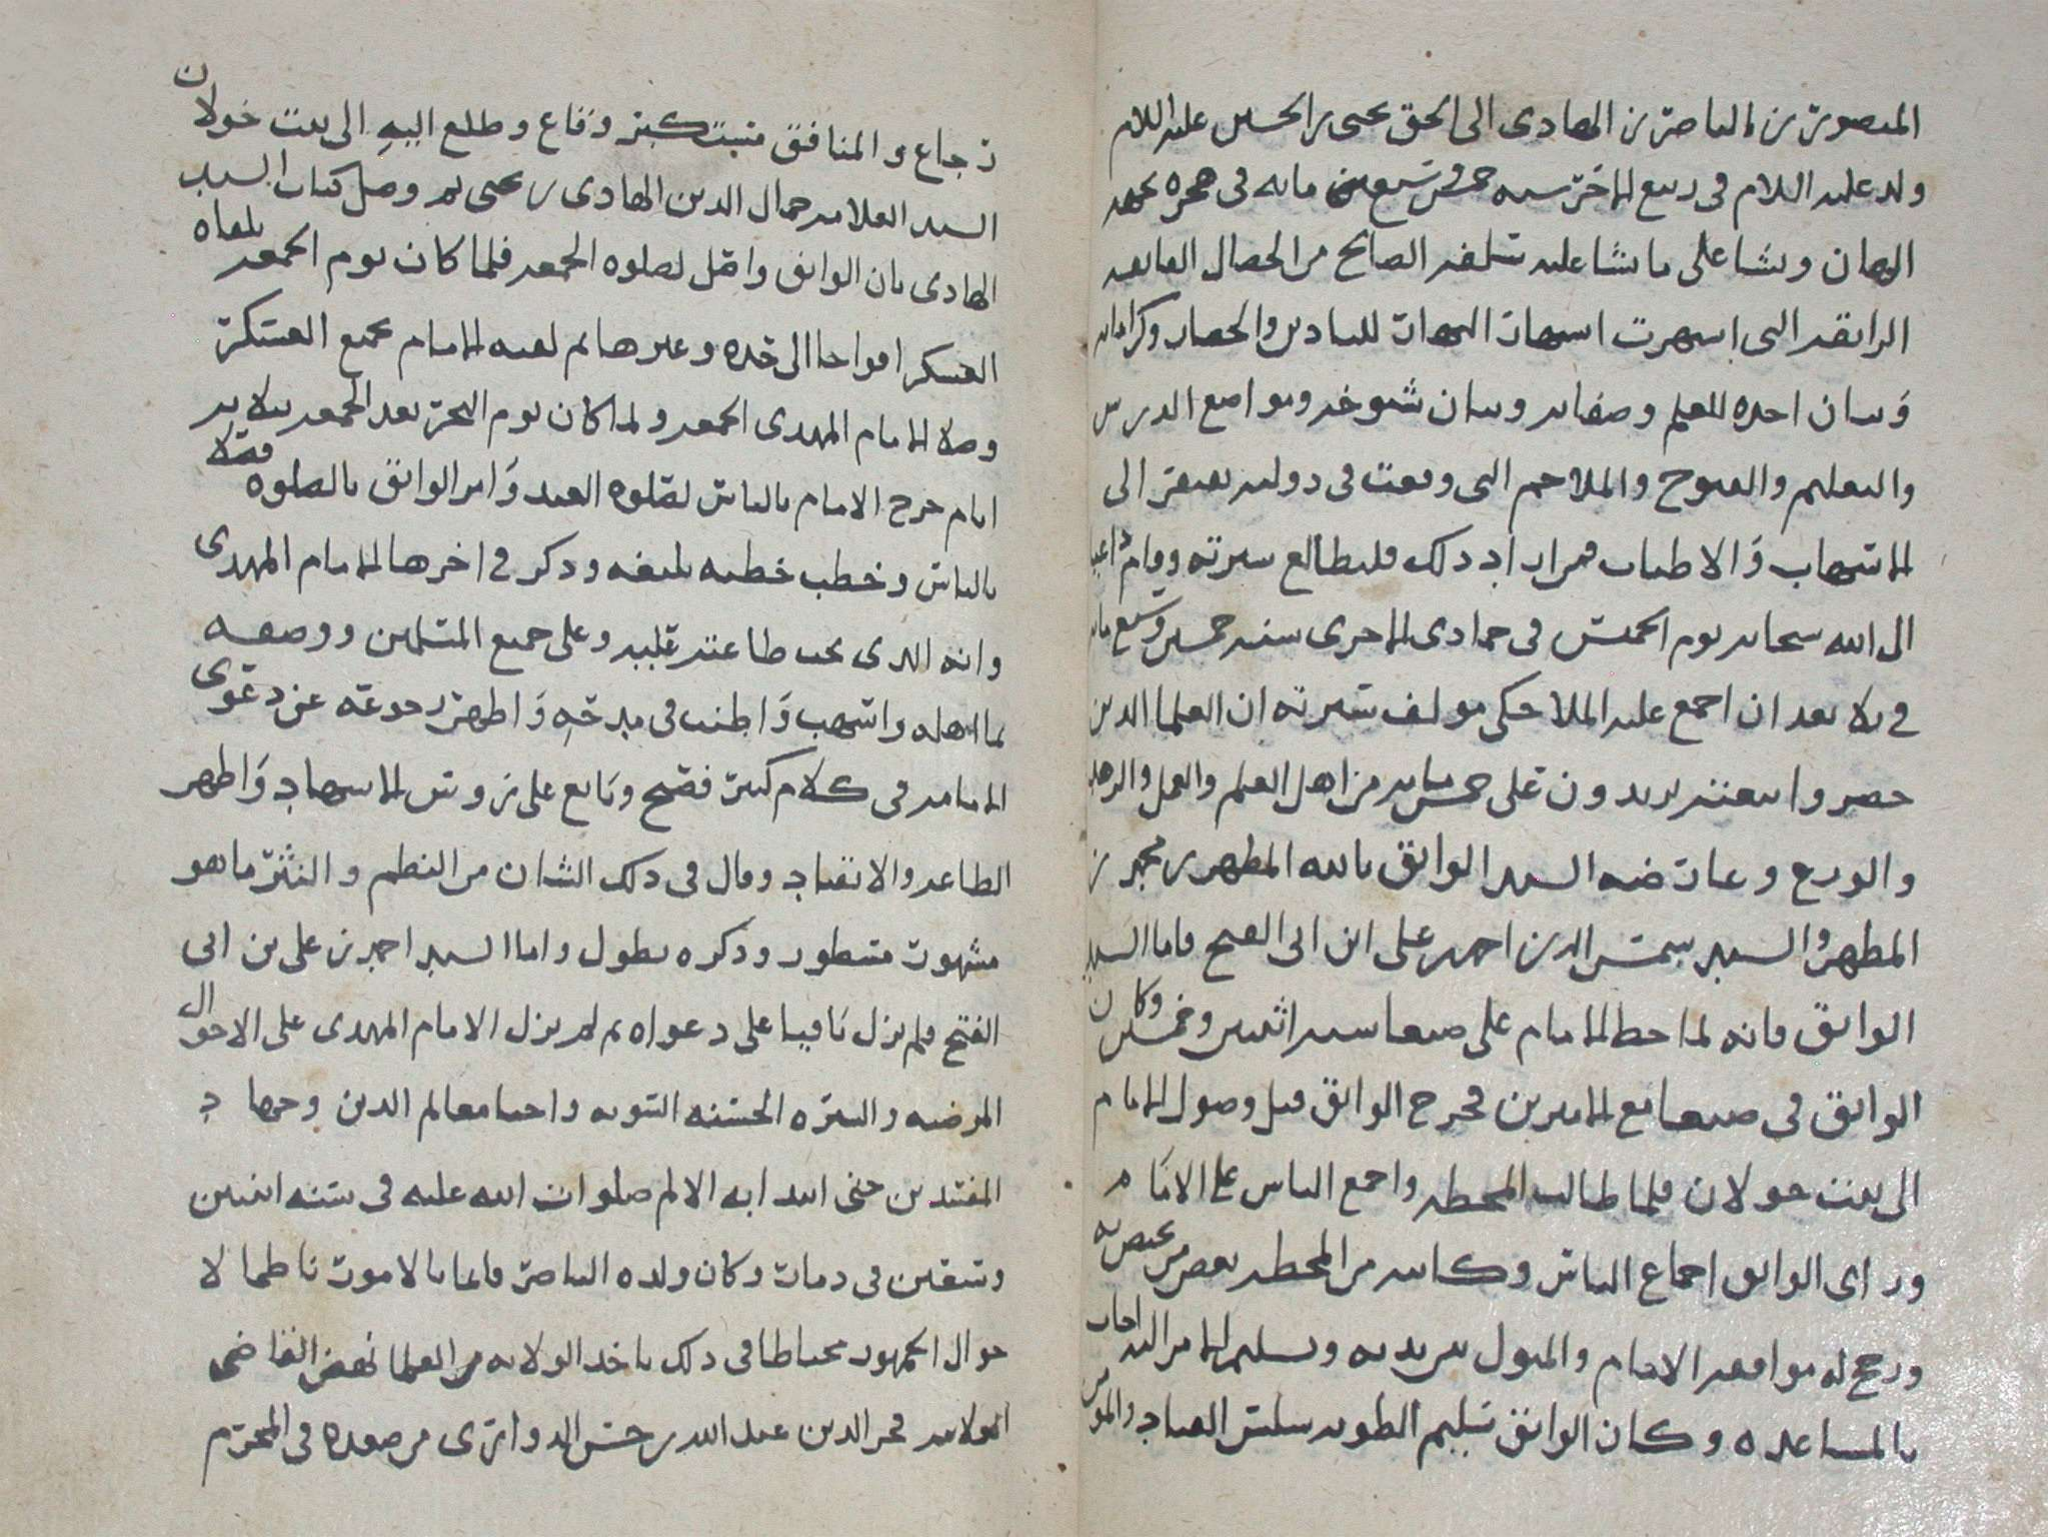 المنصور بن الناصر بن الهادى الى الحق يحيى بن الحسين عليه السلام
ولد عليه السلام فى ربيع الاخر سنه خمس وسبع مائه فى هجره
ونشا على ما نشا عليه سلفه الصالح من الخصال الفايقه
الرايقه التى اشتهرت اشتهار النهار للبادين والحضار وكراماته
وبيان اخذه للعلم وصفاته وبيان شيوخه ومواضع الدرس
والتعليم والفتوح والملاحم التى وقعت فى دولته يفتقر الى
الاسهاب والاطناب فمن اراد ذلك فليطالع سيرته وقام
الى الله سبحانه يوم الخميس فى جمادى الاخرى سنه خمسين وسبع مايه
فى ثلا بعد ان اجمع عليه الملا حكى مولف سيرته ان العلما الذين
حضروا بيعته يزيدون على خمس مايه من اهل العلم والعمل والزهد
والورع وعارضه السيد الواثق بالله المطهر بن محمد بن
المطهر والسيد شمس الدين احمد بن على ابن ابى الفتح فاما السيد
الواثق فانه لما حط الامام على صنعا سنه اثنين وخمسين وكان
الواثق فى صنعا مع الاميرين فخرج الواثق قبل وصول الامام
الى بيت خولان فلما طالت المحطه واجمع الناس على الامام
وراى الواثق اجماع الناس وكاتبه من المحطه بعض من يختص به
ورجح له موافقه الامام والقبول من يديه وتسليم الامر اليه اجاب
بالمساعده وكان الواثق سليم الطويه سلس القياد
وطلع اليه الى بيت خولان
السيد العلامه جمال الدين الهادى بن يحيى ثم وصل كتاب السيد
الهادى بان الواثق واصل لصلوه الجمعه فلما كان يوم الجمعه تلقاه
العسكر افواجا الى حده وغيرها ثم لقيه الامام بجميع العسكر
وصلا الامام المهدى الجمعه ولما كان يوم النحر بعد الجمعه بثلاثه
ايام خرج الامام بالناس لصلوه العيد وامر الواثق بالصلوه فصلا
بالناس وخطب خطبه بليغه وذكر فى اخرها الامام المهدى
وانه الذى يجب طاعته عليه وعلى جميع المسلمين ووصفه
بما اهله واسهب واطنب فى مدحه واظهر رجوعه عن دعوى
الامامه فى كلام كثير فصيح وتابع على روس الاشهاد واظهر
الطاعه والانقياد وقال فى ذلك الشان من النظم والنثر ما هو
مشهور مسطور وذكره يطول واما السيد احمد بن على بن ابى
الفتح فلم يزل باقيا على دعواه ثم لم يزل الامام المهدى على الاحوال
المرضيه والسيره الحسنه السويه واحيا معالم الدين وجهاد
المفسدين حتى صلوات الله عليه فى سنه اثنين
وسبعين فى ذمار وكان ولده الناصر قايما بالامور ناظما لا
حوال الجمهور محتاطا فى ذلك ياخذ الولايه من العلما فنهض القاضى
العلامه فخر الدين عبد الله بن حسن الدوارى من صعده فى المحرم